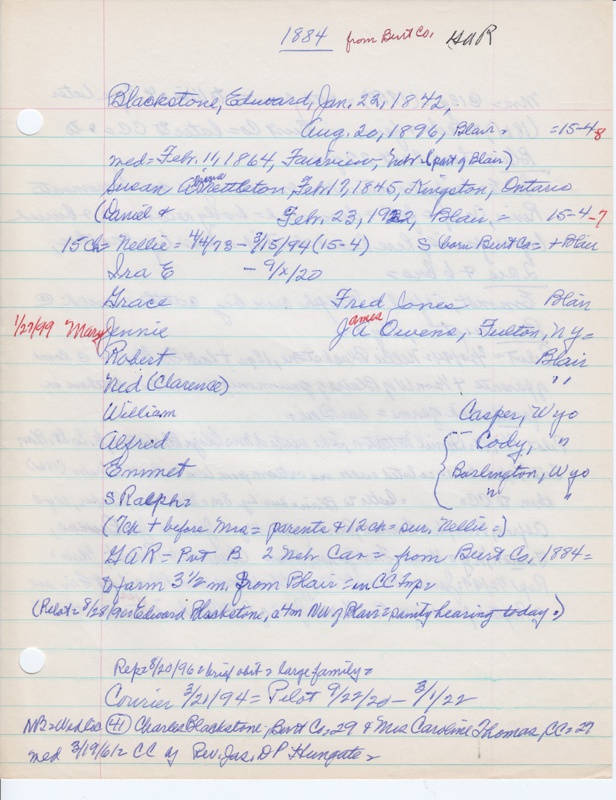 1884 from Burt Co, GAR
Blackstone, Edward, Jan. 22, 1842,
Aug. 20, 1896, Blair, =15-4-8
med = Feb. 11, 1864, Fairview, Nebr (part of Blair)
Susan Nettleton, Feb 17, 1845, Kingston, Ontario
(Daniel & Feb. 23, 1922, Blair, = 15-4-7
15 Ch = Nellie = 4/4/73 - 3/15/94 (15-4) S born Burt Co = + Blair
Ira E - 9/x/20
Grace Fred Jones Blair
1/27/99 Mary Jennie James A Owens, Fulton, Ny =
Robert Blair
Ned (Clarence) " "
William Casper, Wyo
Alfred Cody, "
Emmet Burlington, Wyo
S Ralph = " "
(7ch + before Mrs = parents & 12 ch = sur. Nellie =)
GAR = Pvt B 2 Nebr Cav = from Burt Co, 1884 =
farm 3 1/2 m, from Blair = in CC Tnp =
(Pilot = 8/28/90 = Edward Blackstone, 4 m NW of Blair = sanity hearing today =)
Rep = 8/20/96 = brief obit = large family =
Courier 3/21/94 = Pilot 9/22/20 - 3/1/22
NB = Wed Lic (41) Charles Blackstone, Burt Co = 29 & Mrs Caroline Thomas, CC = 27
med 3/19/61 = CC by Rev. Jas. DP Hungate =